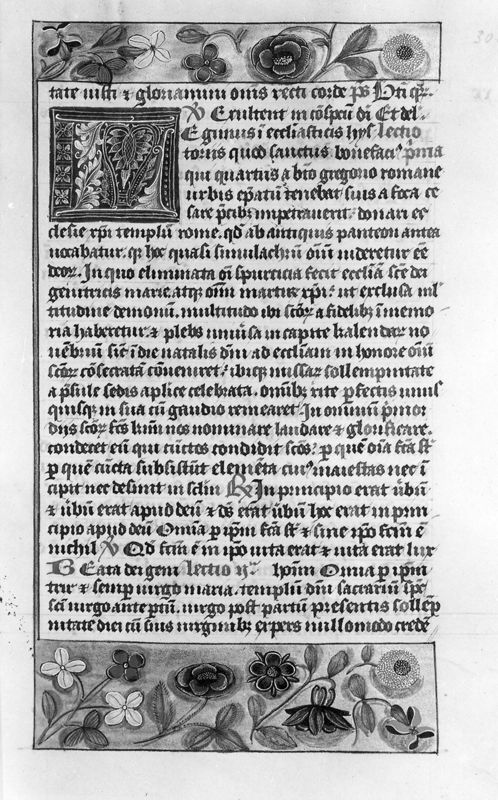 tate iusti & gloriamini omnes recti corde ps Dn̄i
℣ Exultent in cōspectu dei Et del
Egimus ī ecclesiasticis hys lectio
toriis quod sanctus bonefaciꝰ prima
qui quartus a btō gregorio romane
urbis epatū tenebat suis a foca ce
sare p̄cibꝫ impetrauerit donari ec
clesie xp̄i templū rome qd̄ ab antiquis panteon antea
uocabatur qꝫ hoc quasi simulachrū oīm uideretur eē
deoꝝ In quo eliminata oī spurcicia fecit eccliā scē dei
genitricis marie atqꝫ oīm martirū xp̄i ut exclusa ml̄
titudine demonū multitudo ibi scōꝝ a fidelibꝫ ī memo
ria haberetur & plebs uniūsa in capite kalendarū no
uēbriū sicut ī die natalis dn̄i ad eccliam in honore oīm
scōꝝ cōsecratā cōueniret ibiqꝫ missarū sollempnitate
a p̄sule sedis aplice celebrata omībꝫ rite p̄fectis unus
quisqꝫ in sua cū gaudio remearet In omnium p̄mor
diis scōꝝ nos nominare laudare & glorificare
condecet eū qui cūctos condidit scōs p quē oīa fc̄a st̄
p quē cūcta subsistūt elemēta cuiꝰ maiestas nec ī
cipit nec desinit in sclm̄ ℟ In principio erat ūbū
& ūbū erat apud deū & ds̄ erat ūbū hoc erat in prin
cipio apud deū Omnia p ipm̄ fc̄a st̄ & sine ipo fc̄m ē
nichil ℣ Qd̄ fc̄m ē in ipo uita erat & uita erat lux
Beata dei geni lectio ijᵃ hoīm Omnia p ipm̄
trix & semp uirgo maria templū dn̄i sacrariū spc̄
scī uirgo ante ptū uirgo post partū presentis sollēp
nitate diei cū suis uirginibꝫ expers nullomodo credē